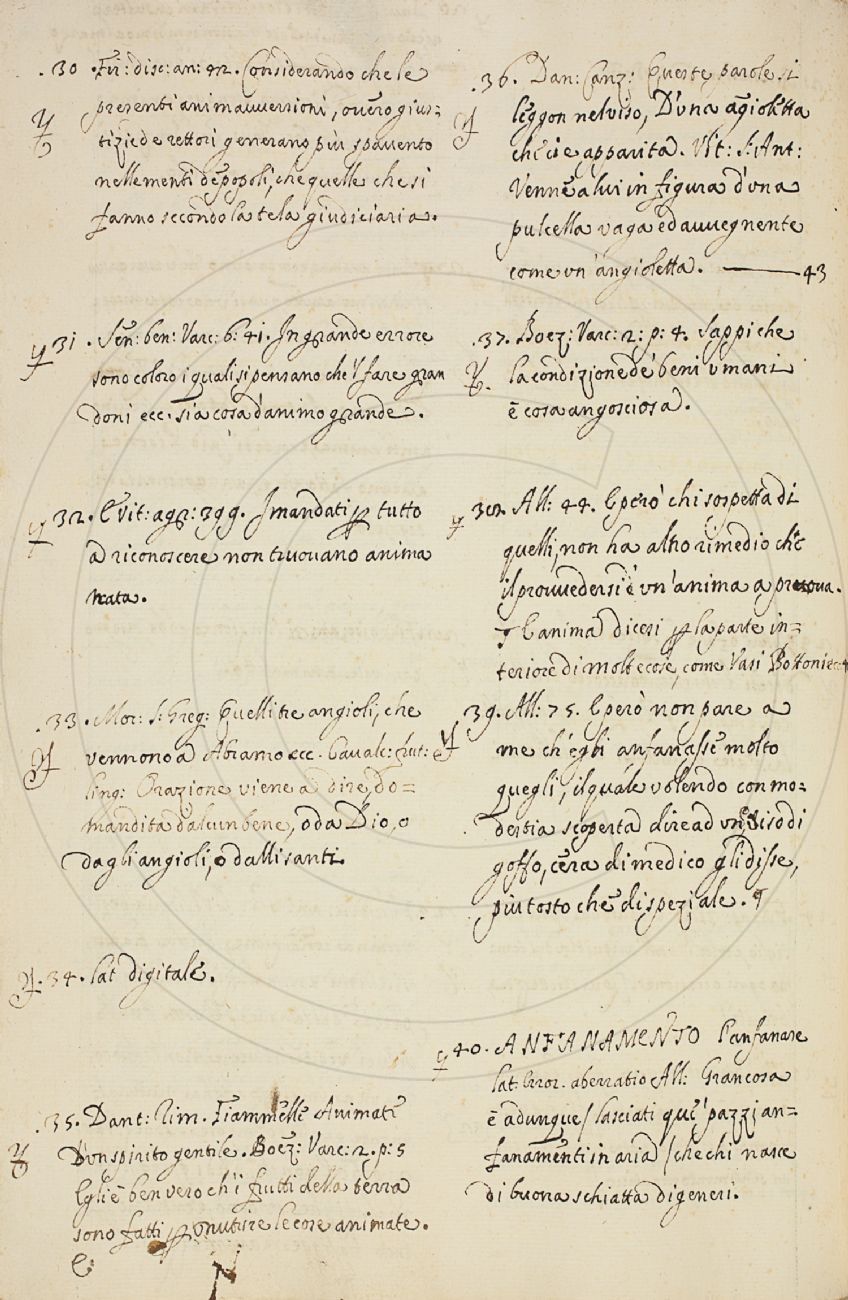 .30 .Fir: disc: an: 42. Considerando che le
presenti animauuersioni, ouero gius=
tizie de rettori generano più spauento
nelle menti de popoli, che quelle che si
fanno secondo la tela giudiciaria.
31. Sen: ben: Varc: 6: 41. In grande errore
sono coloro i quali si pensano che 'l fare gran
doni ecc. sia cosa d'animo grande.
32. E vit: agr: 399. I mandati p tutto
a riconoscere non truouano anima
nata.
.33. Mor: S: Greg: Quelli tre angioli, che
vennono a Abramo ecc. Caualc: frut:
ling: Orazione viene a dire, do=
mandita d'alcun bene, o da Dio, o
dagli angioli, o dalli santi.
.34. lat digitale.
.35. Dant: rim. Fiammelle Animate
D'un spirito gentile. Boez: Varc: 2. p: 5
Egli è ben vero ch'i frutti della terra
sono fatti p nutrire le cose animate.
E:
.36. Dan: Canz: Queste parole si
leggon nel uiso, D'una agioletta
che ci è apparita. Vit: S: Ant:
Venne a lui in figura d'una
pulcella vaga ed auuegnente
come un'angioletta. 43
.37. Boez: Varc: 2: p: 4. Sappi che
la condizione de' beni umani
è cosa angosciosa.
38. All: 44. E però chi sospetta di
quelli, non ha altro rimedio ch'è
il prouuedersi d'un'anima a pruoua.
E anima dicesi p la parte in=
teriore di molte cose, come Vasi Bottoni ecc
39. All: 75. E però non pare a
me ch'egli anfanasse molto
quegli, il quale volendo con mo=
destia scoperta dire ad un, Viso di
goffo, cera di medico gli disse,
più tosto che di speziale.
40. ANFANAMENTO L'anfanare
lat. error. aberratio All: Gran cosa
è adunque / lasciati que' pazzi an=
fanamenti in aria / che chi nasce
di buona schiatta digeneri.